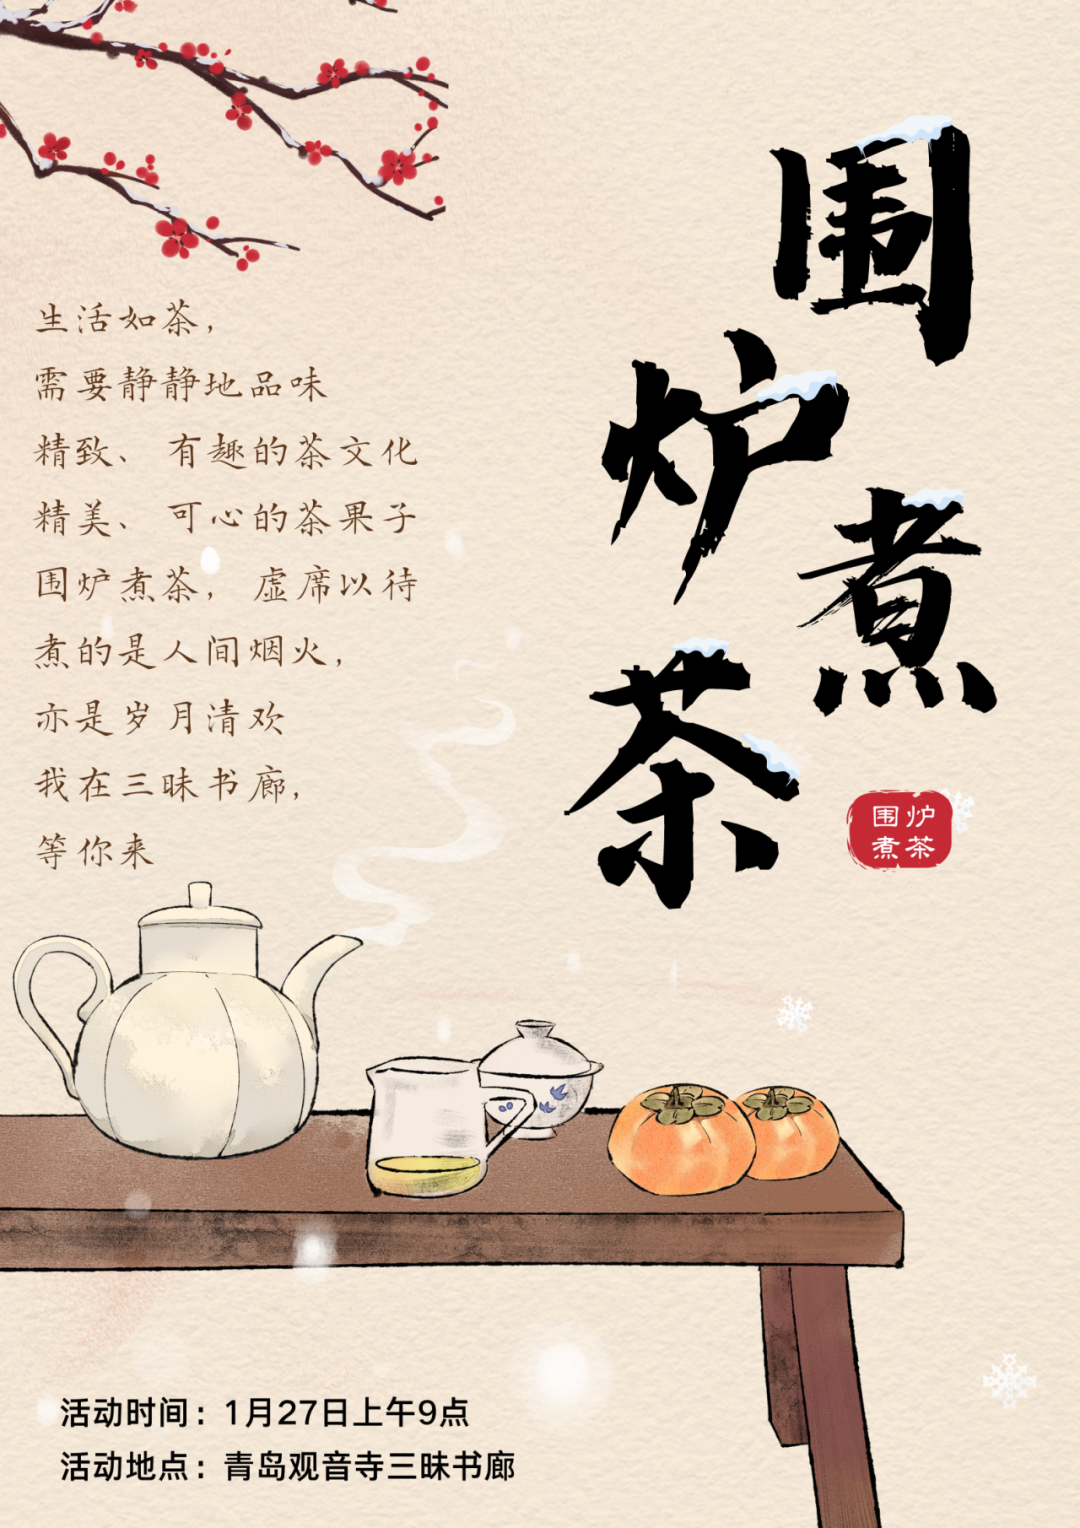 围炉煮茶
生活如茶，
需要静静地品味
精致、有趣的茶文化
精美、可心的茶果子
围炉煮茶，虚席以待
煮的是人间烟火，
亦是岁月清欢
我在三昧书廊，
等你来
围炉
煮茶
活动时间：1月27日上午9点
活动地点：青岛观音寺三昧书廊